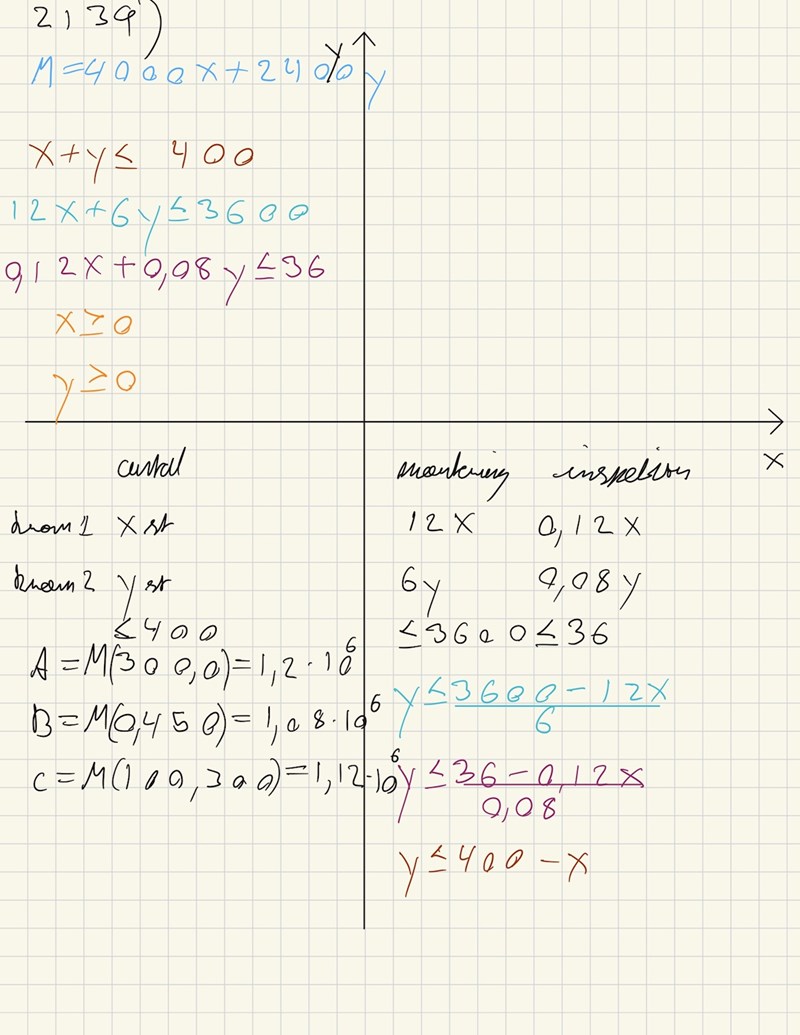 2139)
M=4000x+2400y
y
x+y≤ 400
12x+6y≤3600
0,12x+0,08y≤36
x≥0
y≥0
x
antal montering inspektion
krom1 x st 12x 0,12x
krom2 y st 6y 0,08y
≤400 ≤3600 ≤36
A=M(300,0)=1,2·10^6
B=M(0,450)=1,08·10^6
C=M(100,300)=1,12·10^6
y≤(3600-12x)/6
y≤(36-0,12x)/0,08
y≤400-x